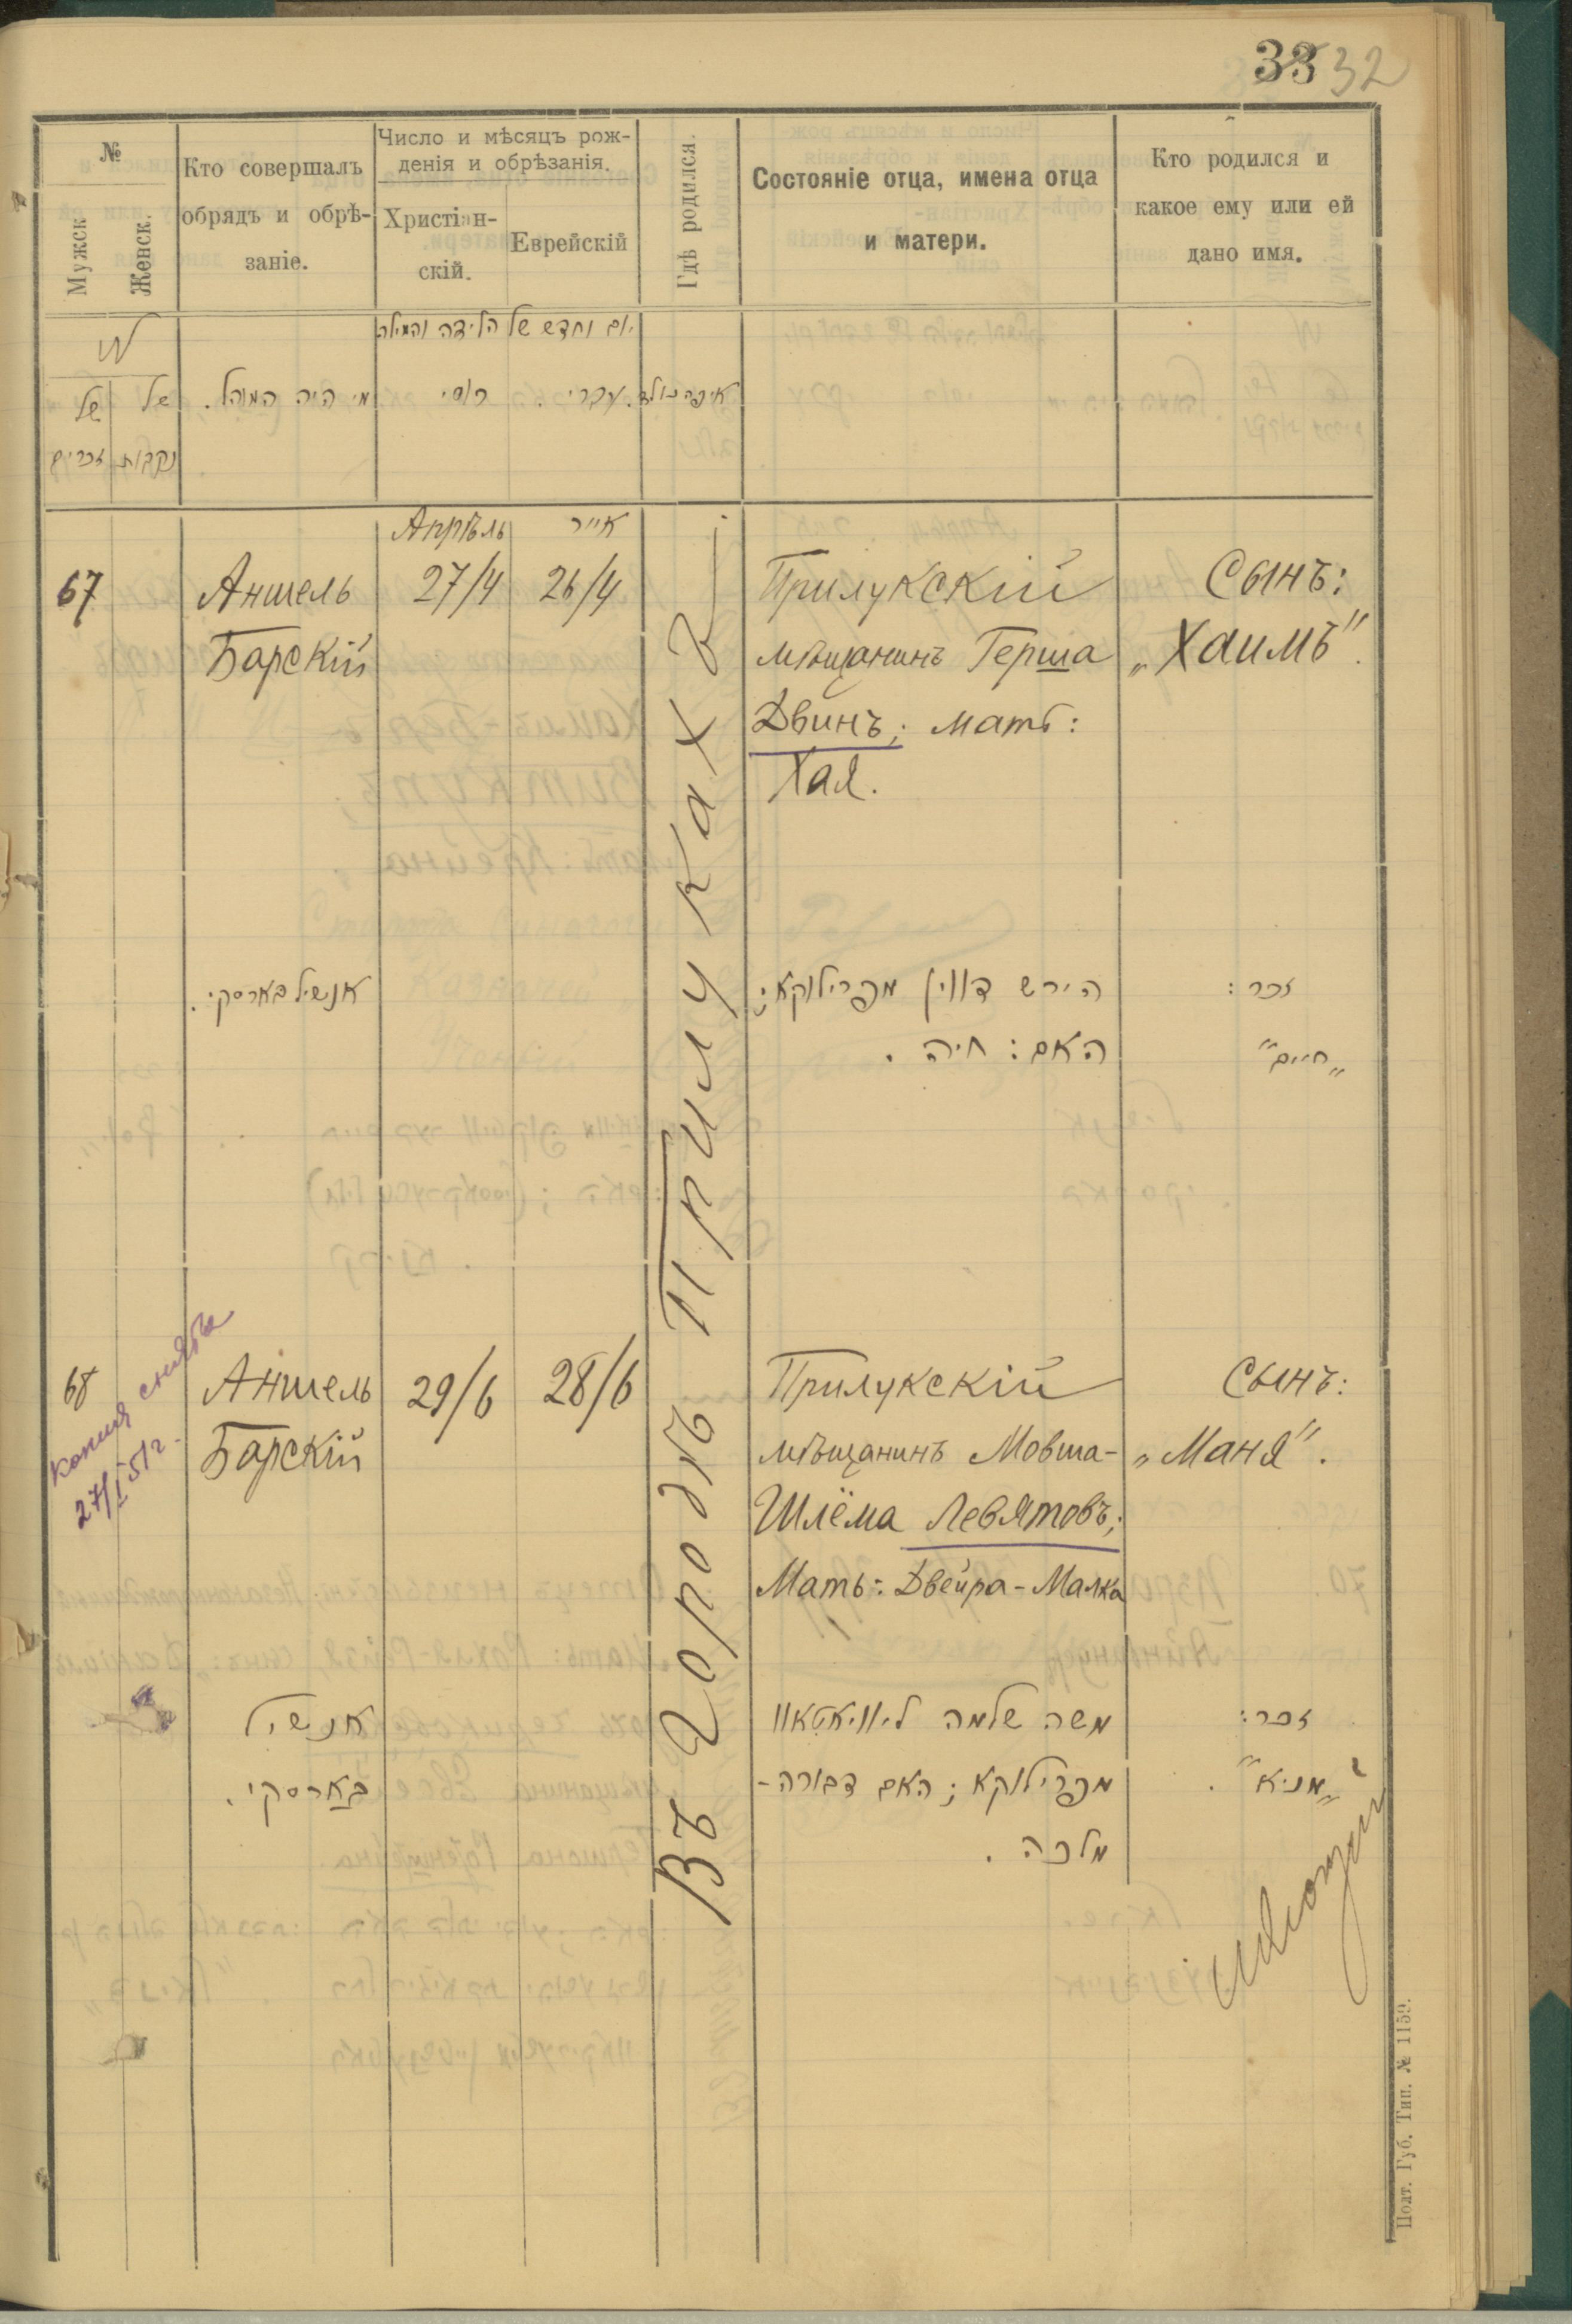 33 32
№
Мужск
Женск.
Кто совершалъ
обрядъ и обрѣ-
заніе.
Число и мѣсяцъ рож-
денія и обрѣзанія.
Христіан-
скій.
Еврейскій
Гдѣ родился.
Состояніе отца, имена отца
и матери.
Кто родился и
какое ему или ей
дано имя.
יום וחדש של הלידה והמילה
של
זכרים
של
נקבות
מי היה המוהל.
רוסי
עברי.
איפה נולד.
Апрѣль
אייר
67
Аншель
Барскій
27/4
26/4
Прилукскій
мѣщанинъ Герша
Двинъ; мать:
Хая.
Сынъ:
„Хаимъ“.
אנשיל בארסקי.
הירש דווין מפרילוקא;
האם: חיה.
זכר:
„חיים“
Въ городѣ Прилукахъ
68
копия снята
27/I 51г.
Аншель
Барскій
29/6
28/6
Прилукскій
мѣщанинъ Мовша-
Шлёма Левятовъ;
Мать: Двейра-Малка
Сынъ:
„Маня“.
אנשיל
בארסקי.
משה שלמה ליוויאטאוו
מפרילוקא; האם דבורה-
מלכה.
זכר:
„מניא“.
Полт. Губ. Тип. № 1159.